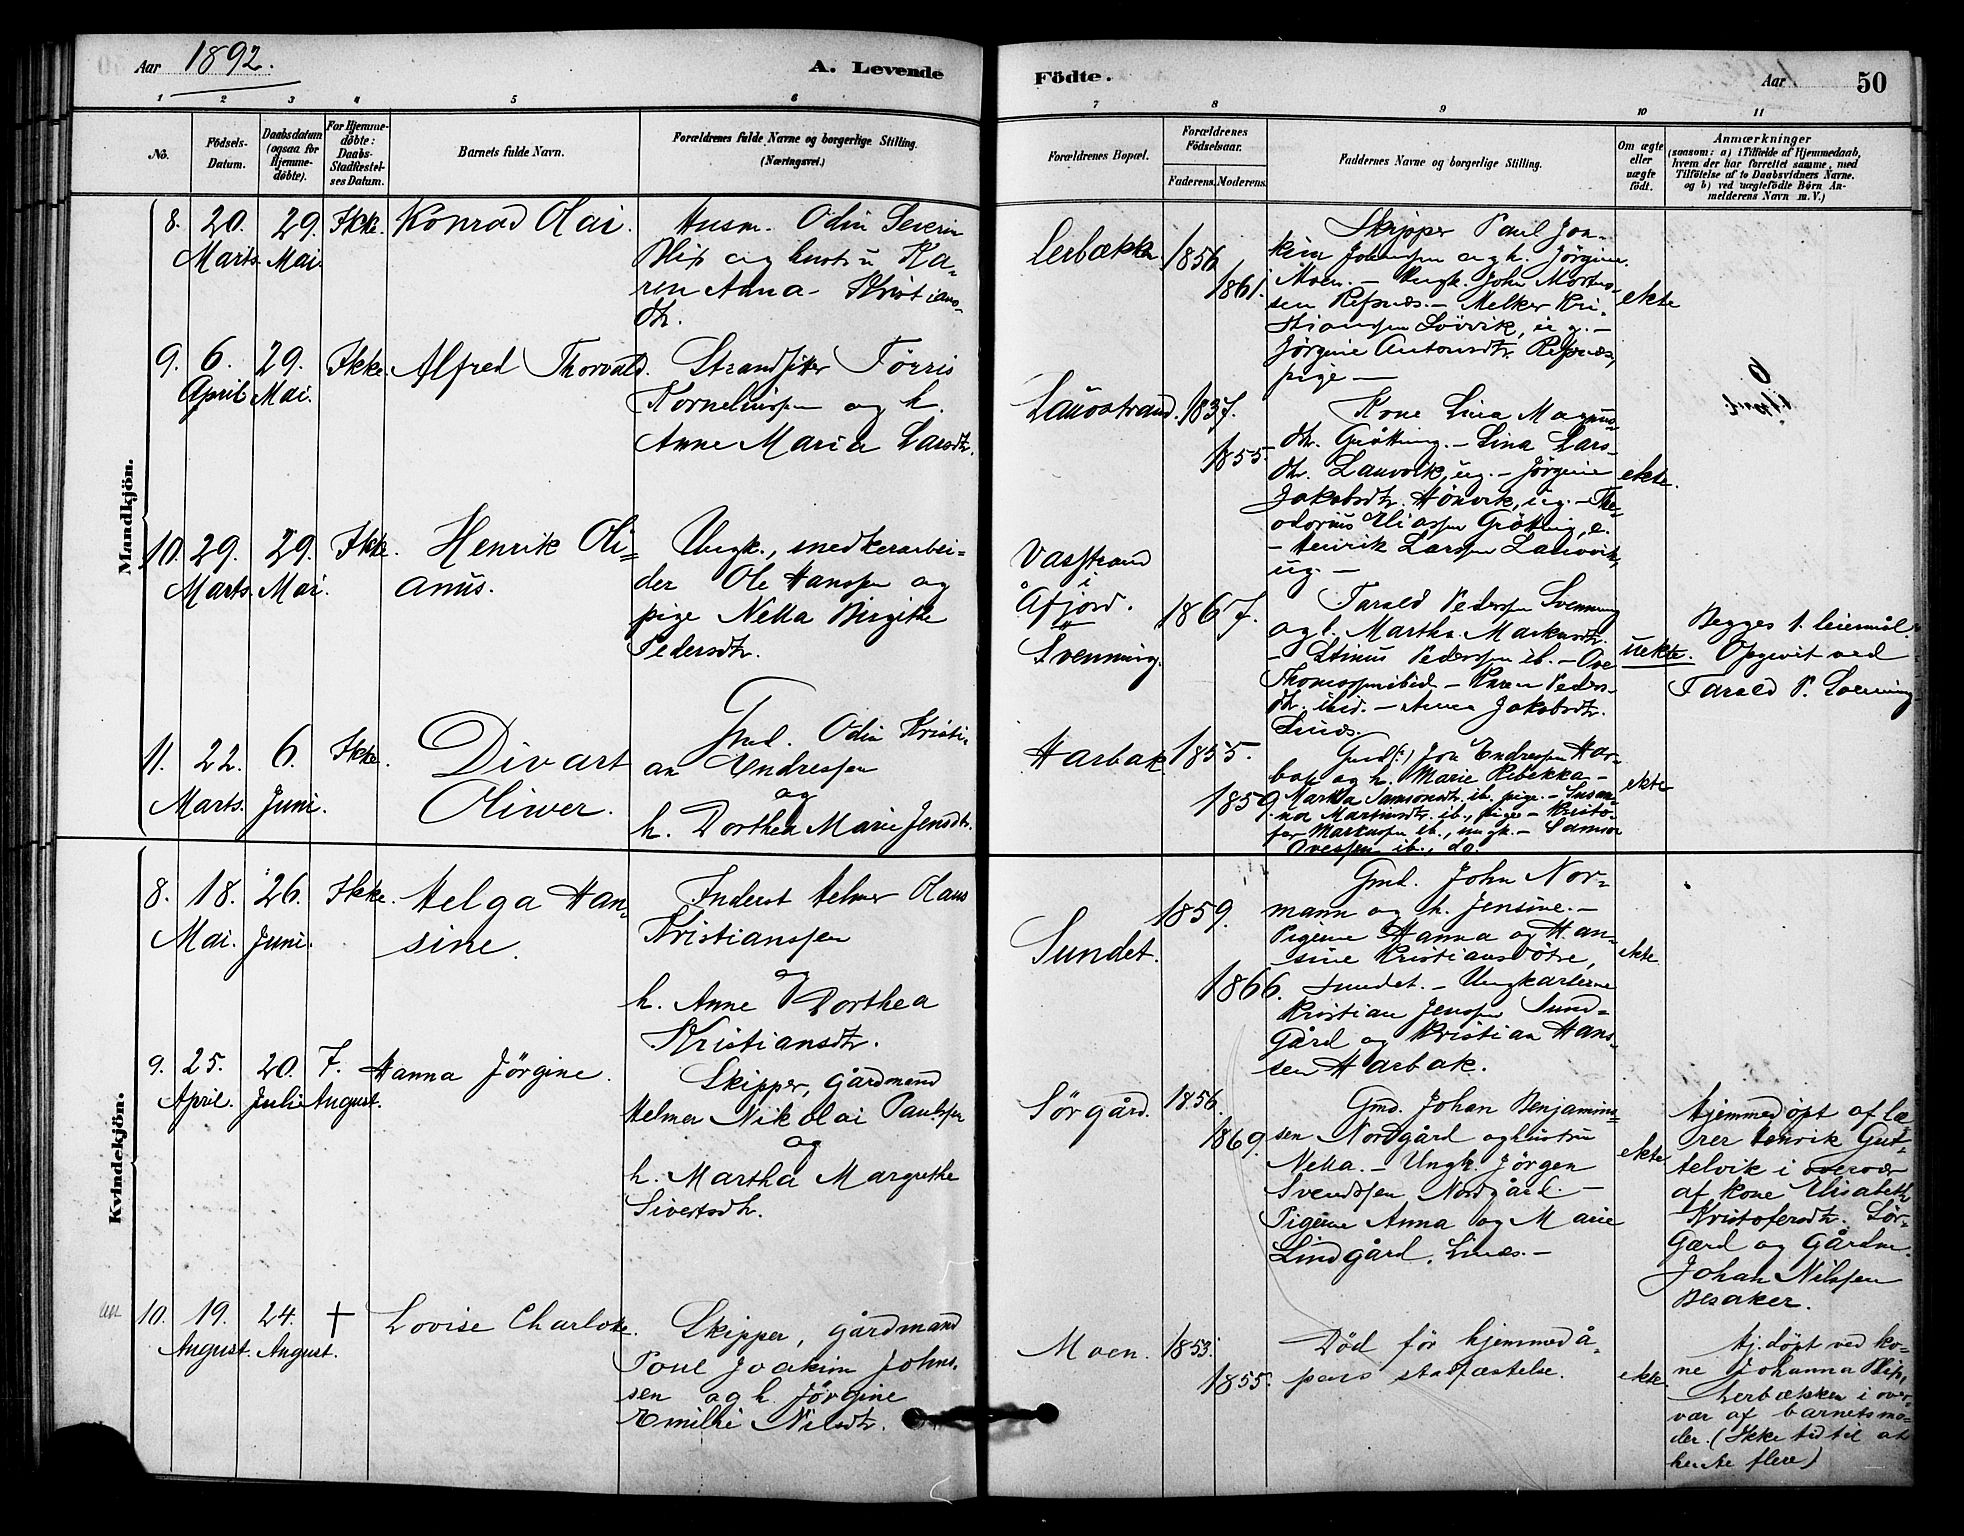 Aar 1892.
A. Levende
Födte.
Aar
50
1 2 3 4 5 6 7 8 9 10 11
No.
Födsels-
Datum.
Daabsdatum
(ogsaa for
Hjemme-
döbte).
For Hjemme-
döbte:
Daabs-
Stadfæstel-
ses Datum.
Barnets fulde Navn.
Forældrenes fulde Navne og borgerlige Stilling.
(Næringsvei.)
Forældrenes Bopæl.
Forældrenes
Födselsaar.
Faderens. Moderens.
Faddernes Navne og borgerlige Stilling.
Om ægte
eller
uægte
født.
Anmærkninger
(saasom: a) i Tilfælde af Hjemmedaab,
hvem der har forrettet samme, med
Tilföielse af to Daabsvidners Navne.
og b) ved uægtefödte Börn An-
melderens Navn m. V.)
Mandkjön.
8. 20. Marts. 29. Mai. Ikke.
Konrad Olai.
Husm. Odin Severin
Blix og hustru Ka-
ren Anna Kristians-
dtr.
Lerbækken 1856
1861.
Skipper Paul Joa-
kim Johnsen og h. Jörgine
Moen. - Ungk. John Mortens-
sen Refsnes. - Melker Kri-
stianssen Lövvik, ug. -
Jörgine Antonsdtr. Refsnes,
pige -
ekte
9. 6. April 29. Mai. Ikke.
Alfred Thorvald.
Strandsitter Törris
Korneliussen og h.
Anne Maria Larsdtr.
Lauvstrand. 1837.
1855.
Kone Lina Magnus-
dtr. Gråtting. - Lina Lars-
dtr. Lauvvik, ug. - Jörgine
Jakobsdtr. Hönvik, ug. - The-
odorus Eliassen Gråtting, e.
- Henrik Larssen Lauvvik,
ug. -
ekte.
10. 29. Marts. 29. Mai. Ikke.
Henrik Oli-
anus.
Ungk., snedkerarbei-
der Ole Hanssen og
pige Nella Birgitte
Pedersdtr.
Vasstrand
i
Åfjord.
Svenning.
1867.
Tarald Pederssen Svenning
og h. Martha Markusdtr.
- Stinus Pederssen ib. - Ove
Thomassen ibid. - Karen Peders-
dtr. ibid. - Anna Jakobsdtr.
Linæs.
uekte.
Begges 1. leiermål.
Opgivet ved
Tarald P. Svenning
11. 22. Marts. 6. Juni. Ikke.
Divart
Oliver.
Gmd. Odin Kristi-
an Endressen
og
h. Dorthea Marie Jensdtr.
Harbak 1855.
1859.
Gmd. Joa Endressen Har-
bak og h. Marie Rebekka -
Martha Samsonsdtr. ib. pige. - Susan-
na Martinsdtr. ib., pige - Kristo-
fer Markussen ib., ungk. - Samson
Ovessen ib., do.
ekte
Kvindekjön.
8. 18. Mai. 26. Juni. Ikke.
Helga Han-
sine.
Inderst Helmer Olaus
Kristianssen
og
h. Anne Dorthea
Kristiansdtr.
Sundet. 1859.
1866.
Gmd. John Nor-
mann og h. Jensine. -
Pigerne Hanna og Han-
sine Kristiansdötre,
Sundet. - Ungkarlene
Kristian Jenssen Sund-
gård og Kristian Hans-
sen Harbak.
ekte.
9. 25. April. 20. Juli 7. August.
Hanna Jörgine.
Skipper, gårdmand
Helmer Nikolai Paulssen
og
h. Martha Margrethe
Sivertsdtr.
Sörgård. 1856.
1869.
Gmd. Johan Benjamins-
sen Nordgård og hustru
Nella. - Ungk. Jörgen
Svendssen Nordgård. -
Pigerne Anna og Marie
Lindgård. Linæs. -
ekte
Hjemmedöpt af læ-
rer Henrik Gut-
telvik i overvær
af kone Elisabeth
Kristofersdtr. Sör-
gærd og Gårdm.
Johan Nilssen
Besaker.
10. 19. August. 24. August. †
Lovise Charlotte.
Skipper, gårdmand
Poul Joakim Johns-
sen og h. Jörgine
Emilie Nilsdtr.
Moen. 1853.
1855.
Död för hjemmedå-
pens stadfæstelse.
ekte
Hj.döpt ved ko-
ne Johanna Blix,
Lerbækken i over-
vær af barnets mo-
der. (Ikke tid til at
hente flere)